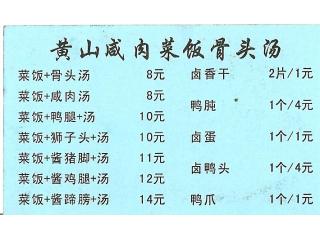 黄山咸肉菜饭骨头汤
菜饭+骨头汤 8元 卤香干 2片/1元
菜饭+咸肉汤 8元
鸭肫 1个/4元
菜饭+鸭腿+汤 10元
菜饭+狮子头+汤 10元 卤蛋 1个/1元
菜饭+酱猪脚+汤 11元
卤鸭头 1个/4元
菜饭+酱鸡腿+汤 12元
菜饭+酱蹄膀+汤 14元 鸭爪 1个/1元